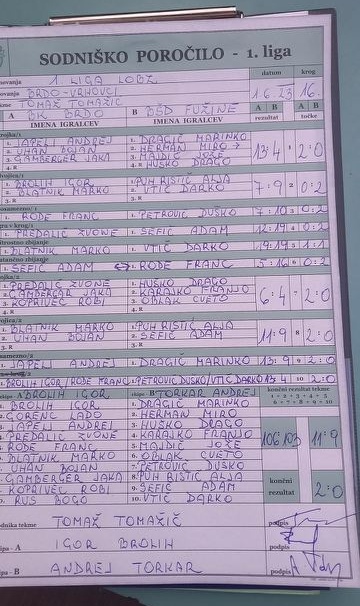 SODNIŠKO POROČILO - 1. liga
novanja 1. LIGA LOBZ datum krog
ovanja BRDO-VRHOVCI 16.
kme TOMAŽ TOMAŽIČ
A BK BRDO B BŠD FUŽINE A B A B
IMENA IGRALCEV IMENA IGRALCEV rezultat točke
1. JAPELJ ANDREJ 1. DRAGIČ MARINKO
2. UHAN BOJAN 2. HERMAN MIRO
3. GAMBERGER JAKA 3. MAJDIČ JOŽE 13:4 1 2:0
4. R 4. R HUSKO DRAGO
1. BROLIH IGOR 1. PUH RISTIČ ALJA
2. BLATNIK MARKO 2. VTIČ DARKO 7:9 2 0:2
3. R 3. R
1. RODE FRANC 1. PETROVIČ DUŠKO 7:10 3 0:2
1. PREDALIČ ZVONE 1. SEFIČ ADAM 12:19 4 0:2
1. BLATNIK MARKO 1. VTIČ DARKO 19:19 5 1:1
1. SEFIČ ADAM ↔ 1. RODE FRANC 5:16 6 0:2
1. PREDALIČ ZVONE 1. HUSKO DRAGO
2. GAMBERGER JAKA 2. KARAJKO FRANJO
3. KOPRIVEC ROBI 3. OBLAK CVETO 6:4 7 2:0
4. R 4. R
1. BLATNIK MARKO 1. PUH RISTIČ ALJA
2. UHAN BOJAN 2. SEFIČ ADAM 11:9 8 2:0
3. R 3. R
1. JAPELJ ANDREJ 1. DRAGIČ MARINKO 13:9 9 2:0
BROLIH IGOR / RODE FRANC PETROVIČ DUSKO/VTIČ DARKO 13:4 10 2:0
ekipa A BROLIH IGOR ekipa B TORKAR ANDREJ končni rezultat tekme
1. BROLIH IGOR 1. DRAGIČ MARINKO 1 + 2 + 3 + 4 + 5
2. GORENC LADO 2. HERMAN MIRO 6 + 7 + 8 + 9 + 10
3. JAPELJ ANDREJ 3. HUSKO DRAGO
4. PREDALIČ ZVONE 4. KARAJKO FRANJO 106 103 11:9
5. RODE FRANC 5. MAJDIČ JOŽE
6. BLATNIK MARKO 6. OBLAK CVETO
7. UHAN BOJAN 7. PETROVIČ DUŠKO
8. GAMBERGER JAKA 8. PUH RISTIČ ALJA končni
9. KOPRIVEC ROBI 9. SEFIČ ADAM rezultat 2:0
10. RUS BOGO 10. VTIČ DARKO
odnika tekme TOMAŽ TOMAŽIČ podpis
ipa - A IGOR BROLIH podpis
ipa - B ANDREJ TORKAR podpis